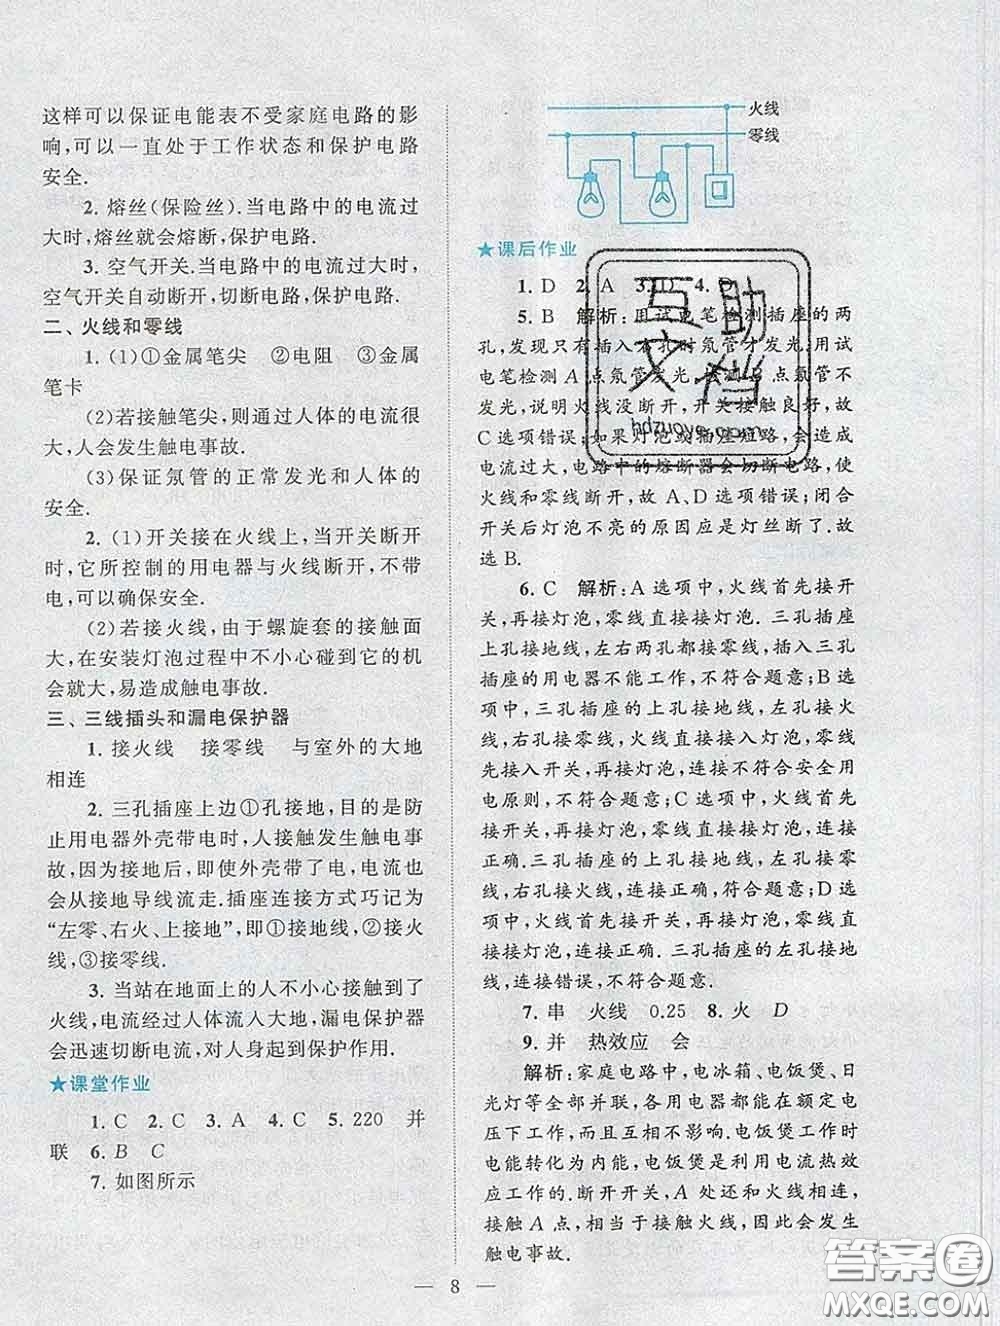 这样可以保证电能表不受家庭电路的影
响,可以一直处于工作状态和保护电路
安全.
2. 熔丝(保险丝).当电路中的电流过
大时,熔丝就会熔断,保护电路.
3. 空气开关.当电路中的电流过大时,
空气开关自动断开,切断电路,保护电路.
二、火线和零线
1. (1)①金属笔尖 ②电阻 ③金属
笔卡
(2)若接触笔尖,则通过人体的电流很
大,人会发生触电事故.
(3)保证氖管的正常发光和人体的
安全.
2. (1)开关接在火线上,当开关断开
时,它所控制的用电器与火线断开,不带
电,可以确保安全.
(2)若接火线,由于螺旋套的接触面
大,在安装灯泡过程中不小心碰到它的机
会就大,易造成触电事故.
三、三线插头和漏电保护器
1. 接火线 接零线 与室外的大地
相连
2. 三孔插座上边①孔接地,目的是防
止用电器外壳带电时,人接触发生触电事
故,因为接地后,即使外壳带了电,电流也
会从接地导线流走.插座连接方式巧记为
“左零、右火、上接地”,即①接地线,②接火
线,③接零线.
3. 当站在地面上的人不小心接触到了
火线,电流经过人体流入大地,漏电保护器
会迅速切断电流,对人身起到保护作用.
★课堂作业
1. C 2. C 3. A 4. C 5. 220 并
联 6. B C
7. 如图所示
火线
零线
★课后作业
1. D 2. A 3. D 4. D
5. B 解析:用试电笔检测插座的两
孔,发现只有插入右孔时氖管才发光.用试
电笔检测 A 点氖管发光,检测 B 点氖管不
发光,说明火线没断开,开关接触良好,故
C 选项错误;如果灯泡或插座短路,会造成
电流过大,电路中的熔断器会切断电路,使
火线和零线断开,故 A、D 选项错误;闭合
开关后灯泡不亮的原因应是灯丝断了.故
选 B.
6. C 解析:A 选项中,火线首先接开
关,再接灯泡,零线直接接灯泡.三孔插座
的上孔接地线,左右两孔都接零线,插入三孔
插座的用电器不能工作,不符合题意;B 选
项中,三孔插座的上孔接地线,左孔接火
线,右孔接零线,火线直接接入灯泡,零线
先接入开关,再接灯泡,连接不符合安全用
电原则,不符合题意;C 选项中,火线首先
接开关,再接灯泡,零线直接接灯泡,连接
正确.三孔插座的上孔接地线,左孔接零
线,右孔接火线,连接正确,符合题意;D 选
项中,火线首先接开关,再接灯泡,零线直
接接灯泡,连接正确.三孔插座的左孔接地
线,连接错误,不符合题意.
7. 串 火线 0.25 8. 火 D
9. 并 热效应 会
解析:家庭电路中,电冰箱、电饭煲、日
光灯等全部并联,各用电器能在额定电
压下工作,而且互相不影响.电饭煲工作时
电能转化为内能,电饭煲是利用电流热效
应工作的.断开开关,A 处还和火线相连,
接触 A 点,相当于接触火线,因此会发生
触电事故.
— 8 —
互助
文档
hdzuoye.com
答案圈
MXQE.COM